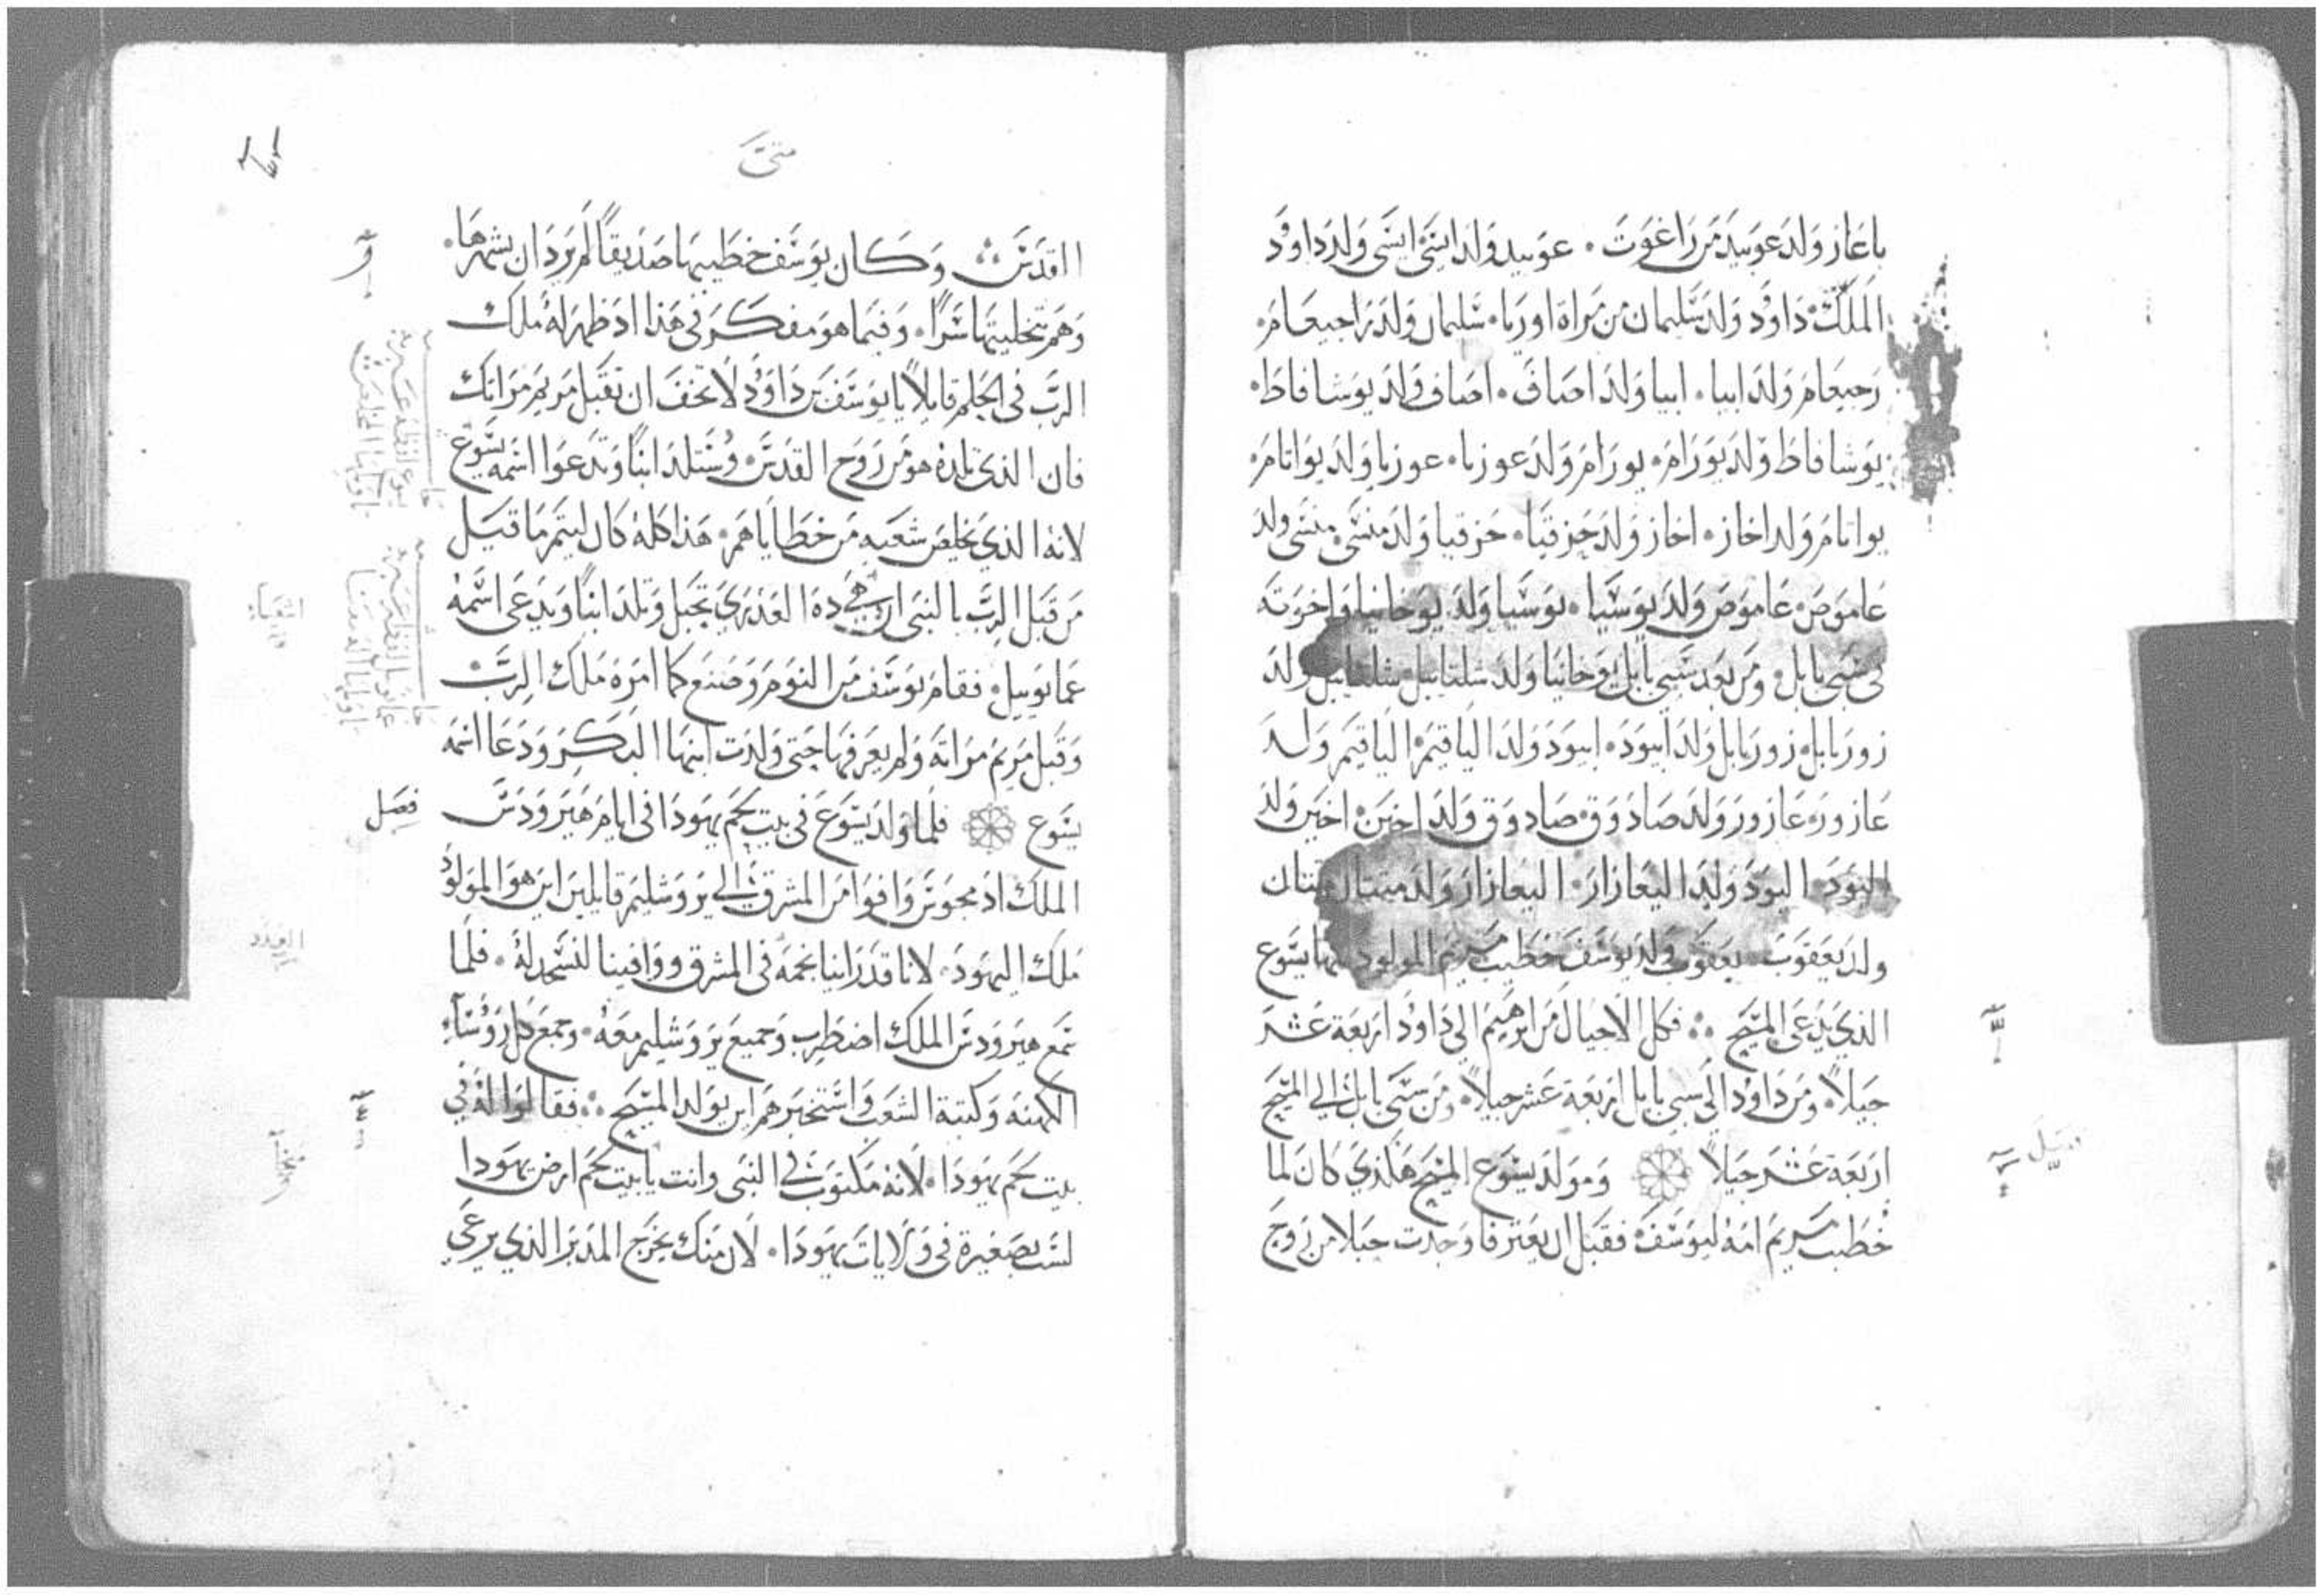 باعاز ولد عوبيد من راغوت . عوبيد ولد ايسى ايسى ولد داوود
الملك . داوود ولد سليمان من مراة اوريا . سليمان ولد راجيعام .
رجيعام ولد ابيا . ابيا ولد اصاف . اصاف ولد يوشافاط .
يوشافاط ولد يورام . يورام ولد عوزيا . عوزيا ولد يواتام .
يواتام ولد اخاز . اخاز ولد حزقيا . حزقيا ولد منسى . منسى ولد
عاموص . عاموص ولد يوسيا . يوسيا ولد يوخانيا واخوته
في سبي بابل . ومن بعد سبي بابل يوخانيا ولد شلتاييل . شلتاييل ولد
زوربابل . زوربابل ولد ابيود . ابيود ولد الياقيم . الياقيم ولد
عازور . عازور ولد صادوق . صادوق ولد اخين . اخين ولد
اليود . اليود ولد اليعازار . اليعازار ولد ميتان ميتان
ولد يعقوب . يعقوب ولد يوسف خطيب مريم المولود منها يسوع
الذي يدعى المسيح . فكل الاجيال من ابرهيم الى داوود اربعة عشر
جيلاً . ومن داوود الى سبي بابل اربعة عشر جيلاً . ومن سبي بابل الى المسيح
اربعة عشر جيلاً ومولد يسوع المسيح هكذي كان لما
خطبت مريم امه ليوسف فقبل ان يعترفا وجدت حبلا من روح
متى
القدس . وكان يوسف خطيبها صديقاً لم يرد ان يشهرها .
وهم بتخليتها سراً . وفيما هو مفكر في هذا اذ ظهر له ملاك
الرب في الحلم قايلاً يا يوسف بن داوود لا تخف ان تقبل مريم مراتك
فان الذي تلده هو من روح القدس . وستلد ابناً وتدعوا اسمه يسوع
لانه الذي يخلص شعبه من خطاياهم . هذا كله كان ليتم ما قيل
من قبل الرب بالنبي ان هي ده العذرى تحبل وتلد ابناً ويدعى اسمه
عمانوييل . فقام يوسف من النوم وصنع كما امره ملاك الرب
وقبل مريم مراته ولم يعرفها حتى ولدت ابنها البكر ودعا اسمه
يسوع فلما ولد يسوع في بيت لحم يهودا في ايام هيرودس
فصل
الملك اذ مجوس وافوا من المشرق الى يروشليم قايلين اين هو المولود
ملك اليهود . لانا قد راينا نجمه في المشرق ووافينا لنسجد له . فلما
سمع هيرودس الملك اضطرب وجميع يروشليم معه . وجمع كل روساء
الكهنه وكتبة الشعب واستخبرهم اين يولد المسيح . فقالوا له في
بيت لحم يهودا . لانه مكتوب في النبى وانت يا بيت لحم ارض يهودا
لست بصغيرة في ولايات يهودا . لان منك يخرج المدبر الذي يرعى